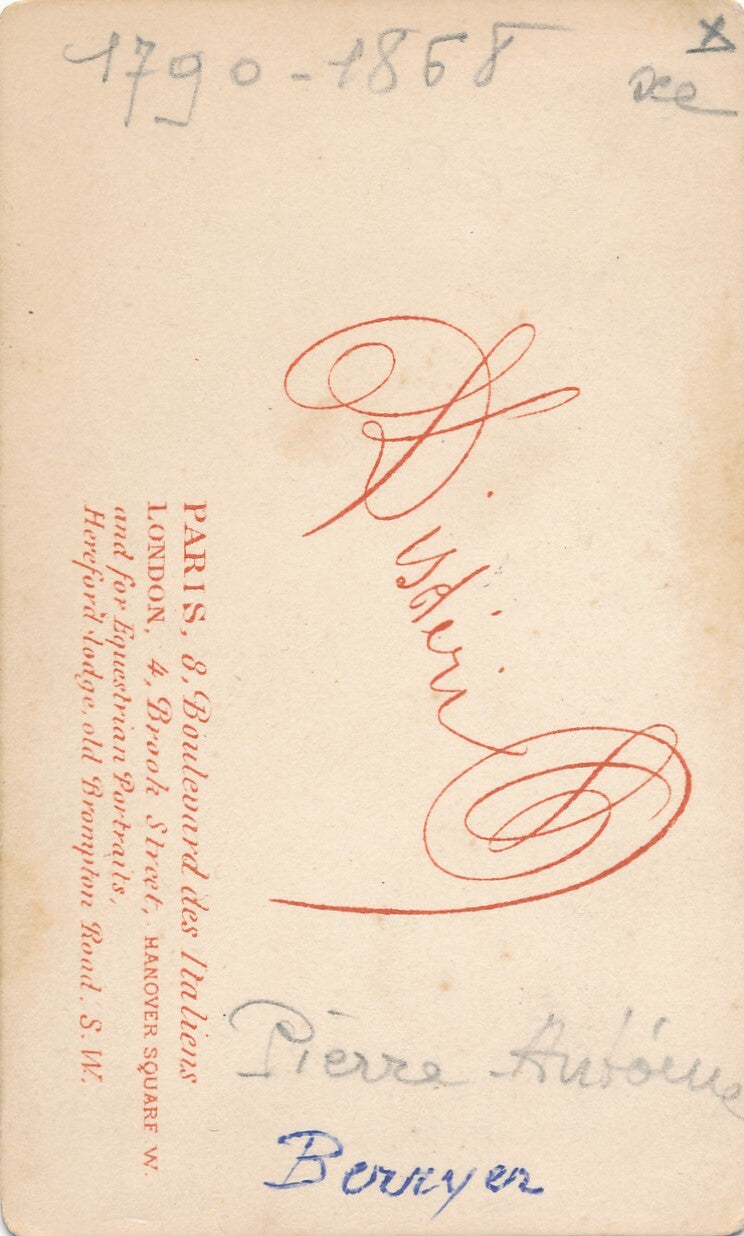 1790-1868
Disdéri
PARIS, 8, Boulevard des Italiens
LONDON, 4, Brook Street, HANOVER SQUARE W.
and for Equestrian Portraits,
Hereford lodge, old Brompton Road, S.W.
Pierre Antoine
Berryer